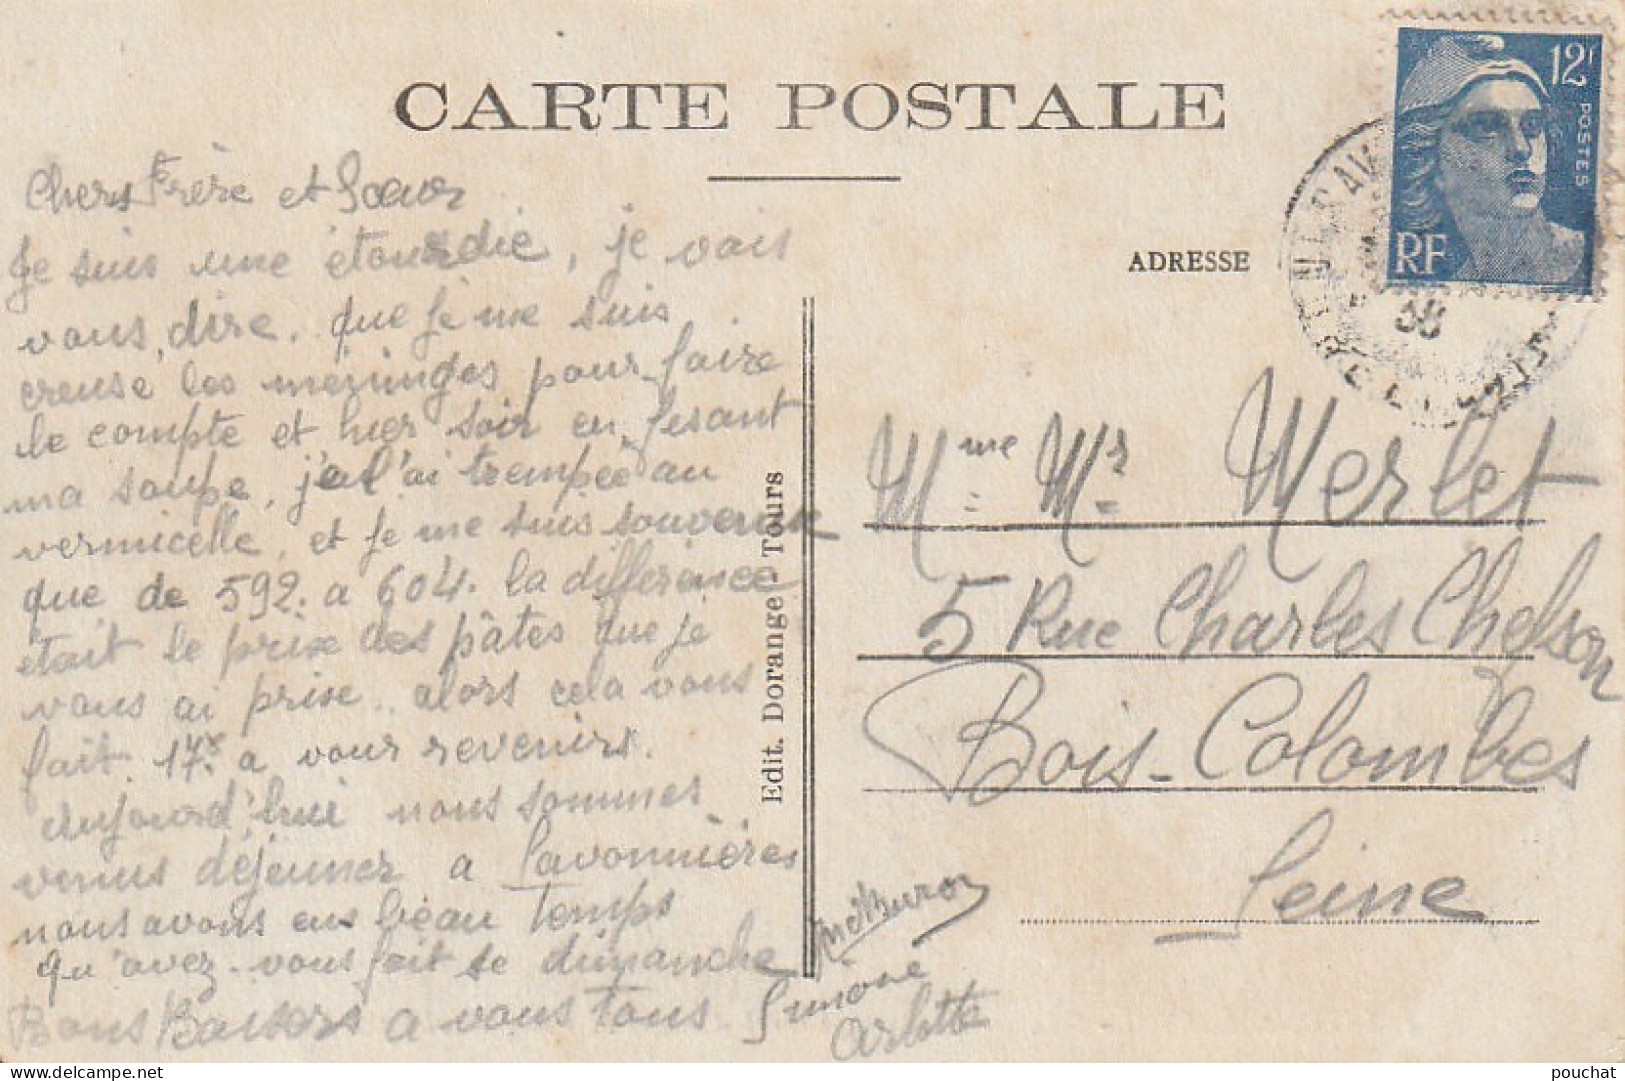 CARTE POSTALE
12F
POSTES
RF
ADRESSE
Chers Frère et Soeur
Je suis une étourdie, je vais
vous, dire, que je me suis
creuse les mezninges pour faire
le compte et hier soir en fesant
ma soupe, j'ai l'ai trempée au
vermicelle, et je me suis souvenue
que de 592. a 604. la différence
etait le prix des pâtes que je
vous ai prise.. alors cela vous
fait 17 a vour revenirs.
aujourd'hui nous sommes
venus déjeuner a Savonnières
nous avons eus beau temps
qu'avez-vous fait se dimanche
Bons Baisers a vous Tous.
Simone
Arlotte
Edit. Dorange - Tours
Mme Mr Merlet
5 Rue Charles Chefson
Bois-Colombes
Seine